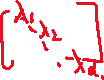 λ1
λ2
λd